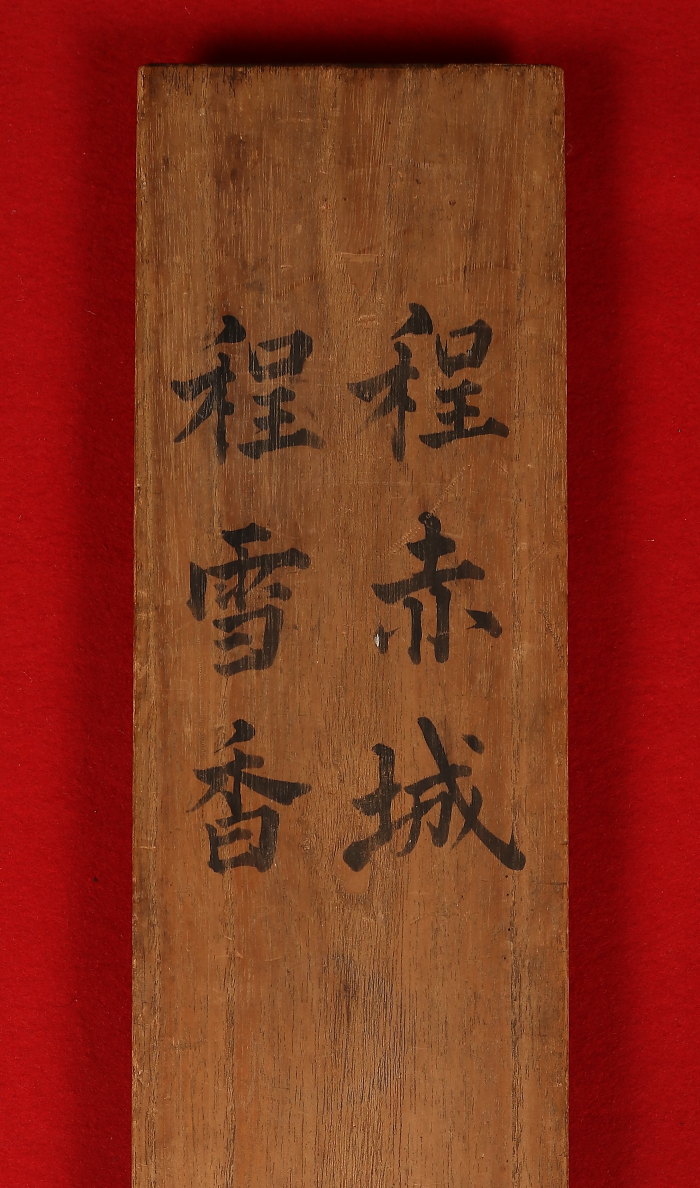 程赤城
程雪香